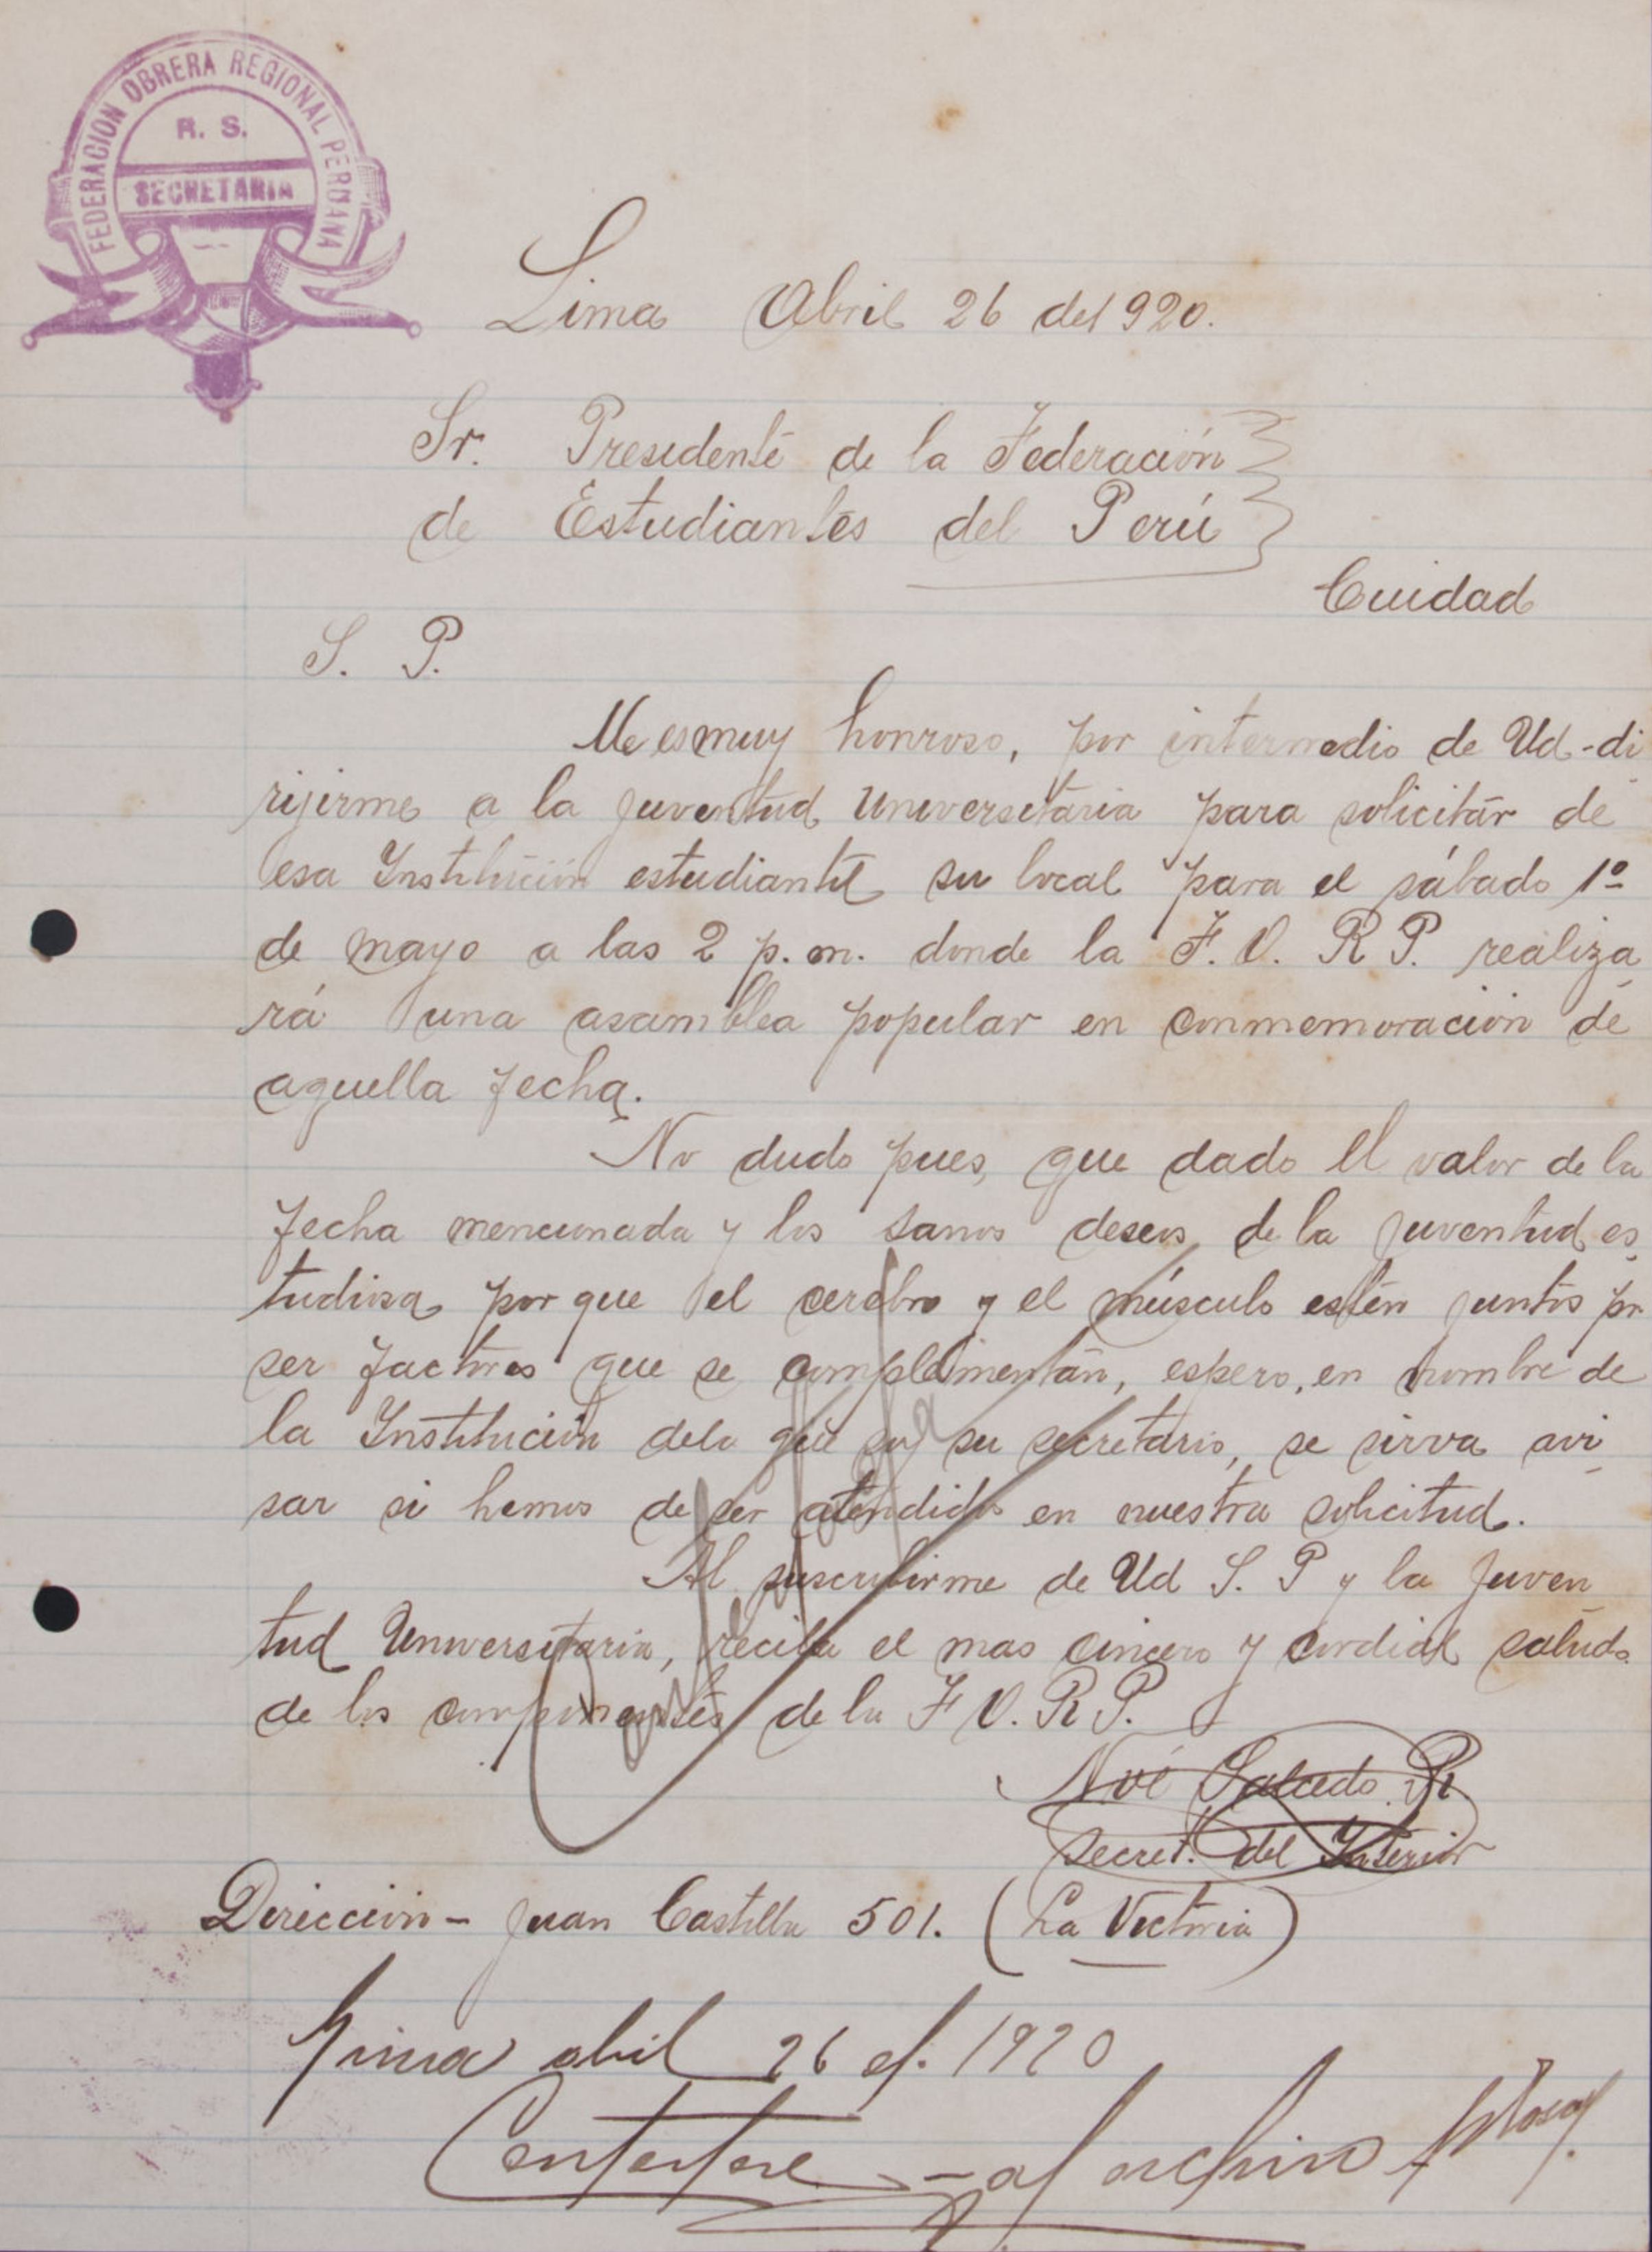 FEDERACION OBRERA REGIONAL PERUANA
R. S.
SECRETARIA
Lima Abril 26 del 920.
Sr. Presidente de la Federación
de Estudiantes del Perú
Cuidad
S. P.
Me es muy honroso, por intermedio de Ud - di
rijirme a la juventud Universitaria para solicitar de
esa Institución estudiantil su local para el sábado 1º
de mayo a las 2 p. m. donde la F. O. R P. realiza
rá una asamblea popular en conmemoración de
aquella fecha.
No dudo pues, que dado el valor de la
fecha mencionada y los sanos deseos de la juventud es
tudiosa por que el cerebro y el músculo estén juntos por
ser factores que se complementan, espero, en nombre de
la Institución dela que soy su secretario, se sirva avi
sar si hemos de ser atendidos en nuestra solicitud.
Al suscribirme de Ud S. P y la Juven
tud Universitaria, reciba el mas cincero y cordial saludo
de los componentes de la F O. R P.
Noé Salcedo R
Secret. del Interior
Dirección - Juan Castilla 501. (La Victoria)
Lima abril 26 de 1920
Contestese - al archivo